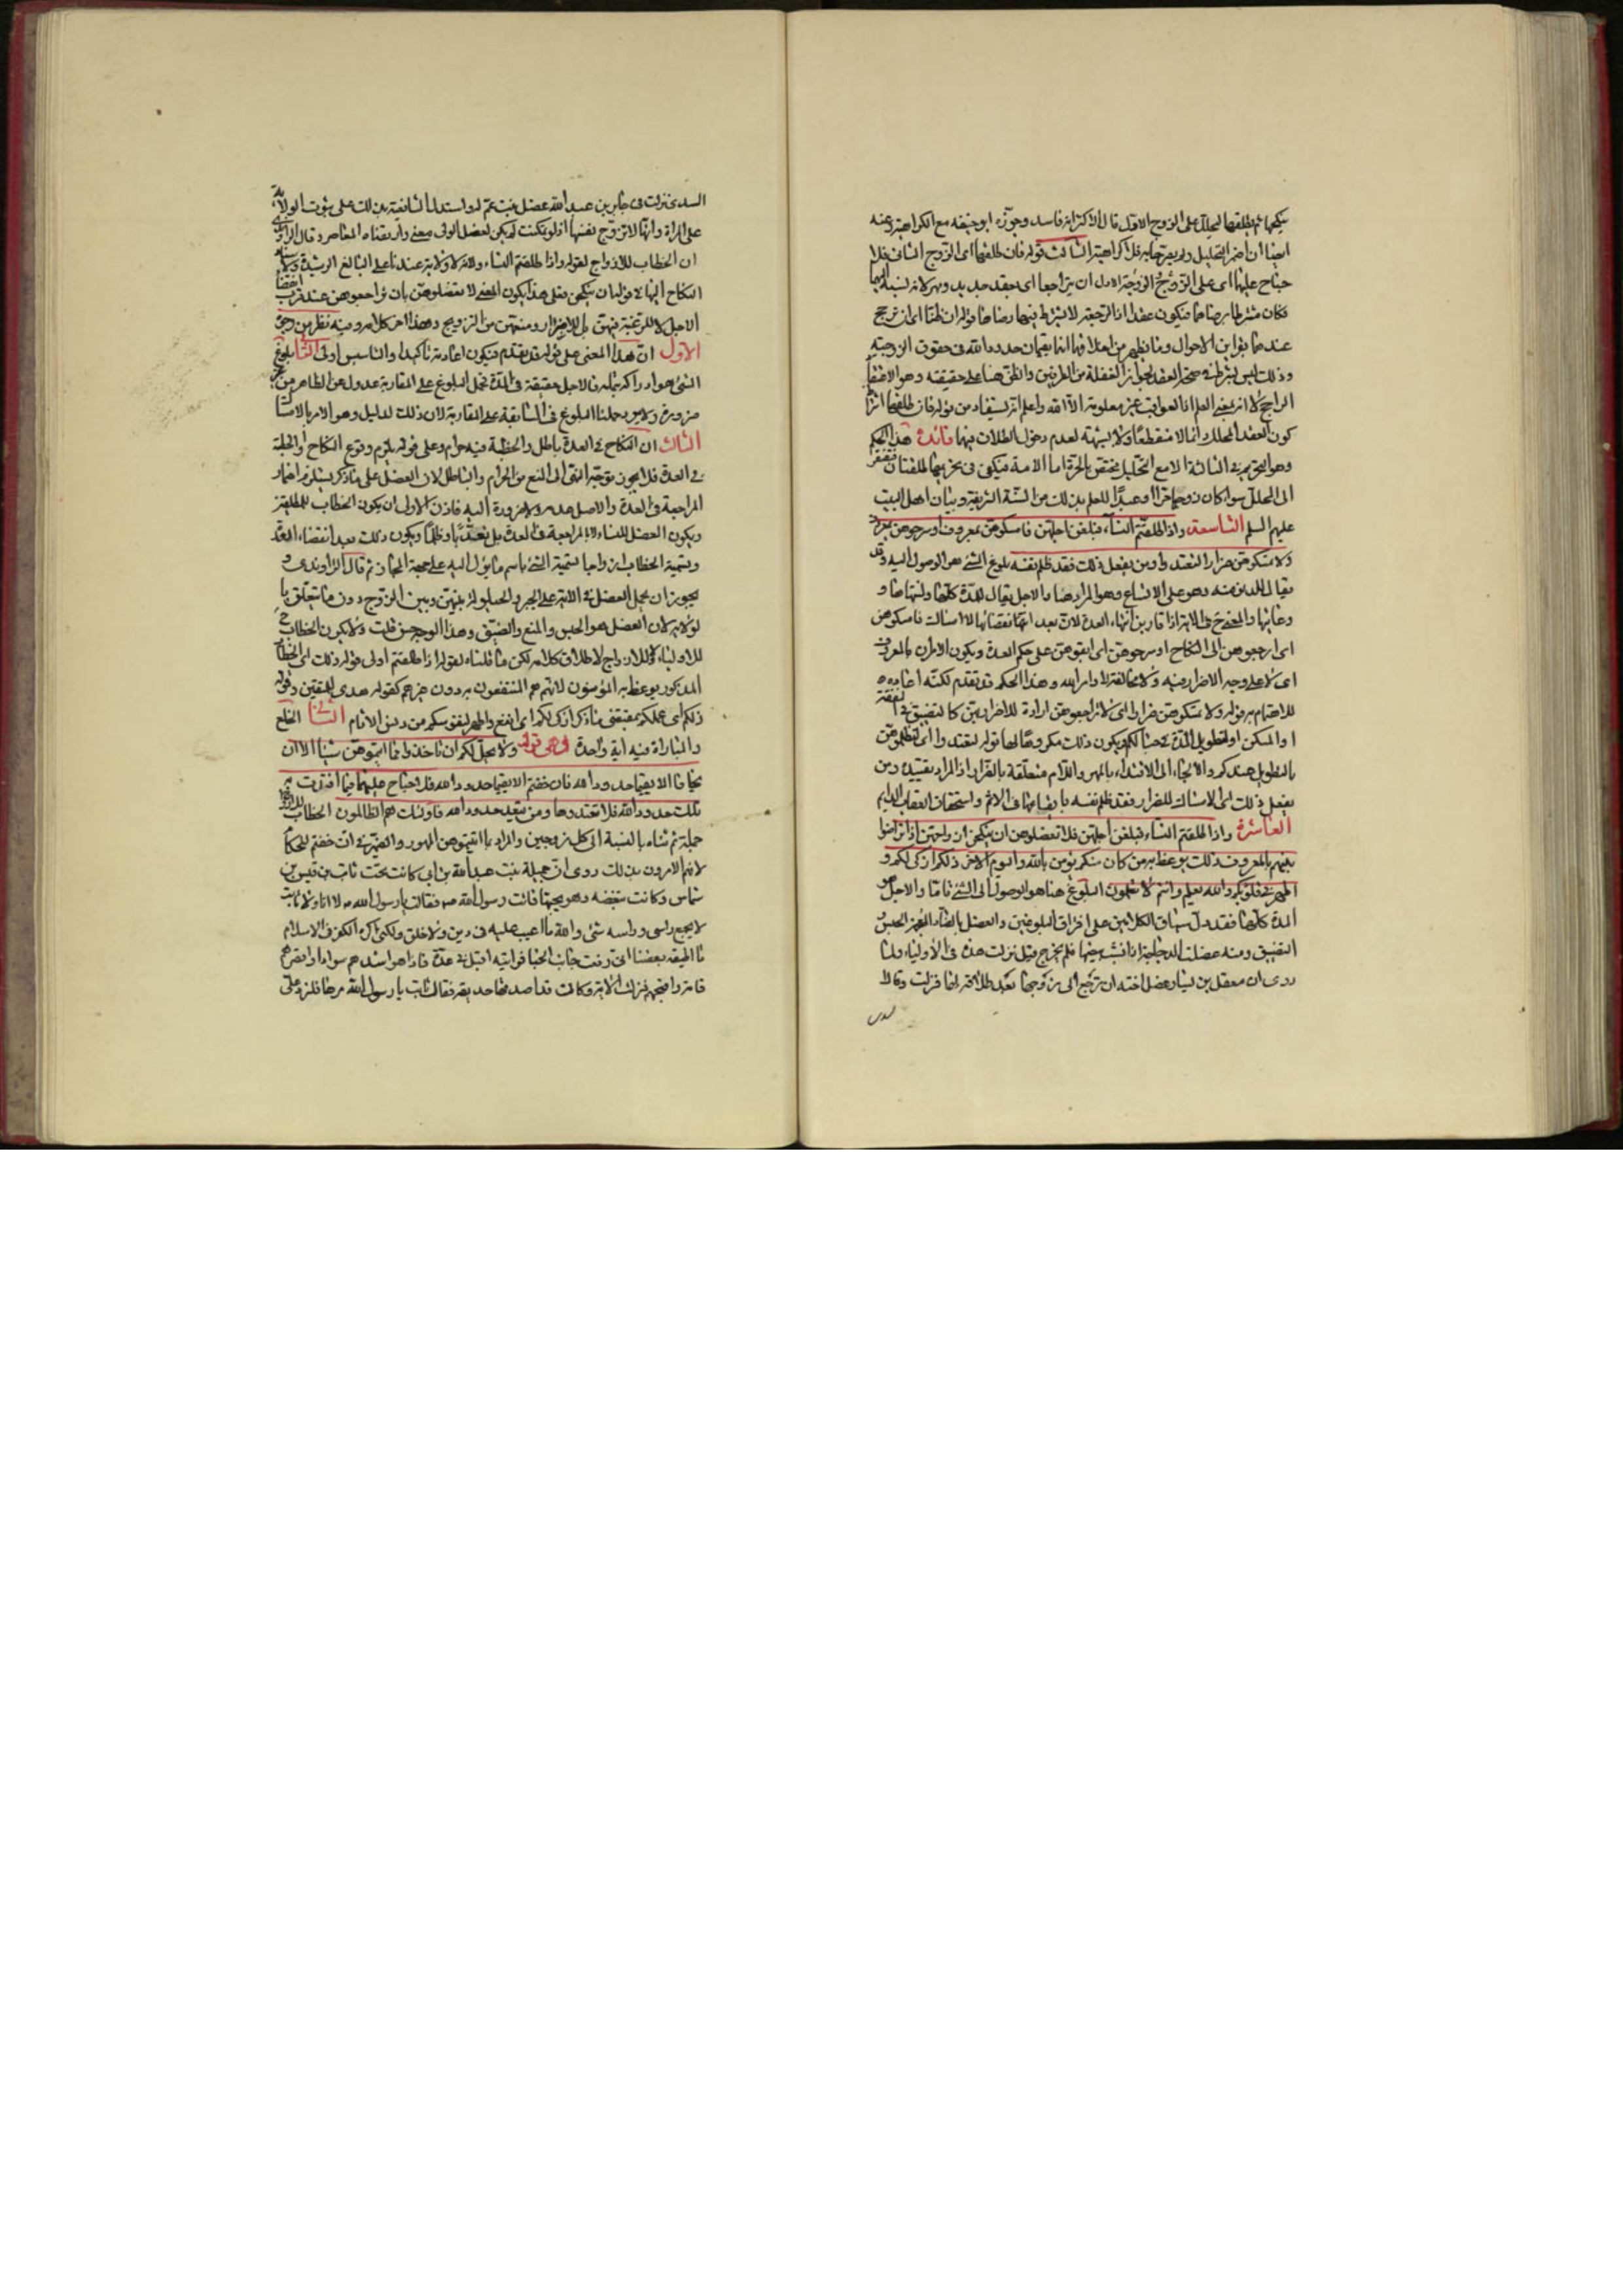 ينكحها ثم يطلقها ليحلل على الزوج الاول قال الاكثر انه فاسد وجوزه ابو حنيفه مع الكراهية وعنه
ايضا ان اضمر التحليل ولم يصرحا به فلا كراهية الثالث قوله فان طلقها اى الزوج الثانى فلا
جناح عليهما اى على الزوج والزوجة الاول ان يتراجعا اى بعقد جديد ومهر لانه نسبه اليهما
فكان مشترطا برضاهما فيكون عقدا اذ الرجعة لا يشترط فيها رضاهما قوله ان ظنا اى ان ترجح
عندهما بقراين الاحوال وما يظهر من اخلاقهما انهما يقيمان حدود الله فى حقوق الزوجية
وذلك ليس بشرط فى صحة العقد لجواز الغفلة من الطرفين والظن هنا على حقيقته وهو الاعتقاد
الراجح لا انه بمعنى العلم اذ العواقب غير معلومة الا لله واعلم انه يستفاد من قوله فان طلقها اشتراط
كون العقد المحلل دائما لا منقطعا ولا شبهة لعدم دخول الطلاق فيها فائدة هذا الحكم
وهو التحريم فى الثالثة الا مع التحليل مختص بالحرة اما الامة فيكفى فى تحريمها طلقتان تفتقر
الى المحلل سوا كان زوجها حرا او عبدا للعلم بذلك من السنة الشريفة وبيان اهل البيت
عليهم السلم التاسعة واذا طلقتم النساء فبلغن اجلهن فامسكوهن بمعروف او سرحوهن بمعروف
ولا تمسكوهن ضرارا لتعتدوا ومن يفعل ذلك فقد ظلم نفسه بلوغ الشئ هو الوصول اليه وقد
يقال للدنو منه وهو على الاتساع وهو المراد هنا والاجل يقال للمدة كلها ولمنتهاها و
وغايتها والمعنى فى الاية اذا قاربن انتهاء العدة لان بعد انقضائها لا امساك فامسكوهن
اى ارجعوهن الى النكاح او سرحوهن اى ابقوهن على حكم العدة ويكون الامران بالمعروف
اى لا على وجه الاضرار فيه ولا مخالفة لاوامر الله وهذا الحكم قد تقدم لكنه اعاده
للاهتمام به قوله ولا تمسكوهن ضرارا اى لا تراجعوهن ارادة للاضرار بهن كالتضييق فى النفقة
او المسكن او لتطويل المدة فى حبالكم ويكون ذلك مكروها لها قوله لتعتدوا اى لتظلموهن
بالتطويل عندكم والالجاء الى الافتداء بالمهر واللام متعلقة بالضرار اذ المراد تقييده ومن
يفعل ذلك اى الامساك للضرار فقد ظلم نفسه بايقاعها فى الاثم واستحقاق العقاب الدايم
العاشرة واذا طلقتم النساء فبلغن اجلهن فلا تعضلوهن ان ينكحن ازواجهن اذا تراضوا
بينهم بالمعروف ذلك يوعظ به من كان منكم يؤمن بالله واليوم الاخر ذلكم ازكى لكم و
اطهر فى قلوبكم والله يعلم وانتم لا تعلمون البلوغ هنا هو الوصول الى الشئ تاما والاجل هو
المدة كلها فقد دل سياق الكلامين على افتراق البلوغين والعضل بالضاد المعجمة الحبس و
التضييق ومنه عضلت الدجاجة اذا نشب بيضها فلم يخرج قيل نزلت هذه فى الاولياء ولما
روى ان معقل بن يسار عضل اخته ان ترجع الى زوجها بعد طلاقه لها فنزلت وقال
السدى
السدى نزلت فى جابر بن عبد الله عضل بنت عم له واستدل الشافعية بذلك على ثبوت الولاية
على المراة وانها لا تزوج نفسها اذ لو تمكنت لم يكن لعضل الولى معنى وارتضاه المعاصر وقال الراوندى
ان الخطاب للازواج لقوله واذا طلقتم النساء ولانه لا ولاية عندنا على البالغ الرشيدة ولاسناد
النكاح اليها فى قوله ان ينكحن فعلى هذا يكون المعنى لا تعضلوهن بان تراجعوهن عند قرب انقضاء
الاجل لا للرغبة فيهن بل للاضرار ومنعهن من التزويج وهذا اخر كلامه وفيه نظر من وجوه
الاول ان هذا المعنى على قوله قد تقدم فيكون اعادته تاكيدا والتاسيس اولى الثانى بلوغ
الشئ هو ادراكه بتمامه والاجل حقيقة فى المدة فحمل البلوغ على المقاربة عدول عن الظاهر من غير
ضرورة ولا يرد حملنا البلوغ فى السابقة على المقاربة لان ذلك لدليل وهو الامر بالامساك
الثالث ان النكاح فى العدة باطل والخطبة فيه حرام وعلى قوله يلزم وقوع النكاح او الخطبة
فى العدة فلا يجوز توجه النهى الى المنع من الحرام والباطل لان العضل على ما ذكر يستلزم اضمار
المراجعة فى العدة والاصل عدمه ولا ضرورة اليه فاذن الاولى ان يكون الخطاب للمطلقين
ويكون العضل للنساء لا بالمراجعة فى العدة بل تعديا وظلما ويكون ذلك بعد انقضاء العدة
وتسمية الخطاب ازواجا تسمية الشئ باسم ما يؤل اليه على جهة المجاز ثم قال الراوندى و
يجوز ان يحمل العضل فى الاية على الجبر والحيلولة بينهن وبين الزوج دون ما يتعلق با
لولاية لان العضل هو الحبس والمنع والضيق وهذا الوجه حسن قلت ولا يكون الخطاب ح
للاولياء وللازواج لاطلاق كلامه لكن ما قلناه لقوله اذا طلقتم اولى قوله ذلك اى الخطاب
المذكور يوعظ به المؤمنون لانهم هم المنتفعون به دون غيرهم كقوله هدى للمتقين وقوله
ذلكم اى عملكم بمقتضى ما ذكر ازكى لكم اى انفع واطهر لقلوبكم من دنس الاثام الثانى الخلع
والمباراة فيه اية واحدة وهى قوله ولا يحل لكم ان تاخذوا مما اتيتموهن شيئا الا ان
يخافا الا يقيما حدود الله فان خفتم الا يقيما حدود الله فلا جناح عليهما فيما افتدت به
تلك حدود الله فلا تعتدوها ومن يتعد حدود الله فاولئك هم الظالمون الخطاب للازواج
جملة ثم ثناه بالنسبة الى كل زوجين والمراد بما اتيتموهن المهور والضمير فى ان خفتم للحكام
لانهم الامرون بذلك روى ان جميلة بنت عبد الله بن ابى كانت تحت ثابت بن قيس بن
شماس وكانت تبغضه وهو يحبها فاتت رسول الله ص فقالت يا رسول الله ص لا انا ولا ثابت
لا يجمع راسى وراسه شئ والله ما اعيب عليه فى دين ولا خلق ولكنى اكره الكفر فى الاسلام
ما اطيقه بغضا انى رفعت جانب الخبا فرايته اقبل فى عدة فاذا هو اشدهم سوادا واقصرهم
قامة واقبحهم فنزلت الاية وكانت قد اصدقها حديقة فقال ثابت يا رسول الله مرها فلترد على